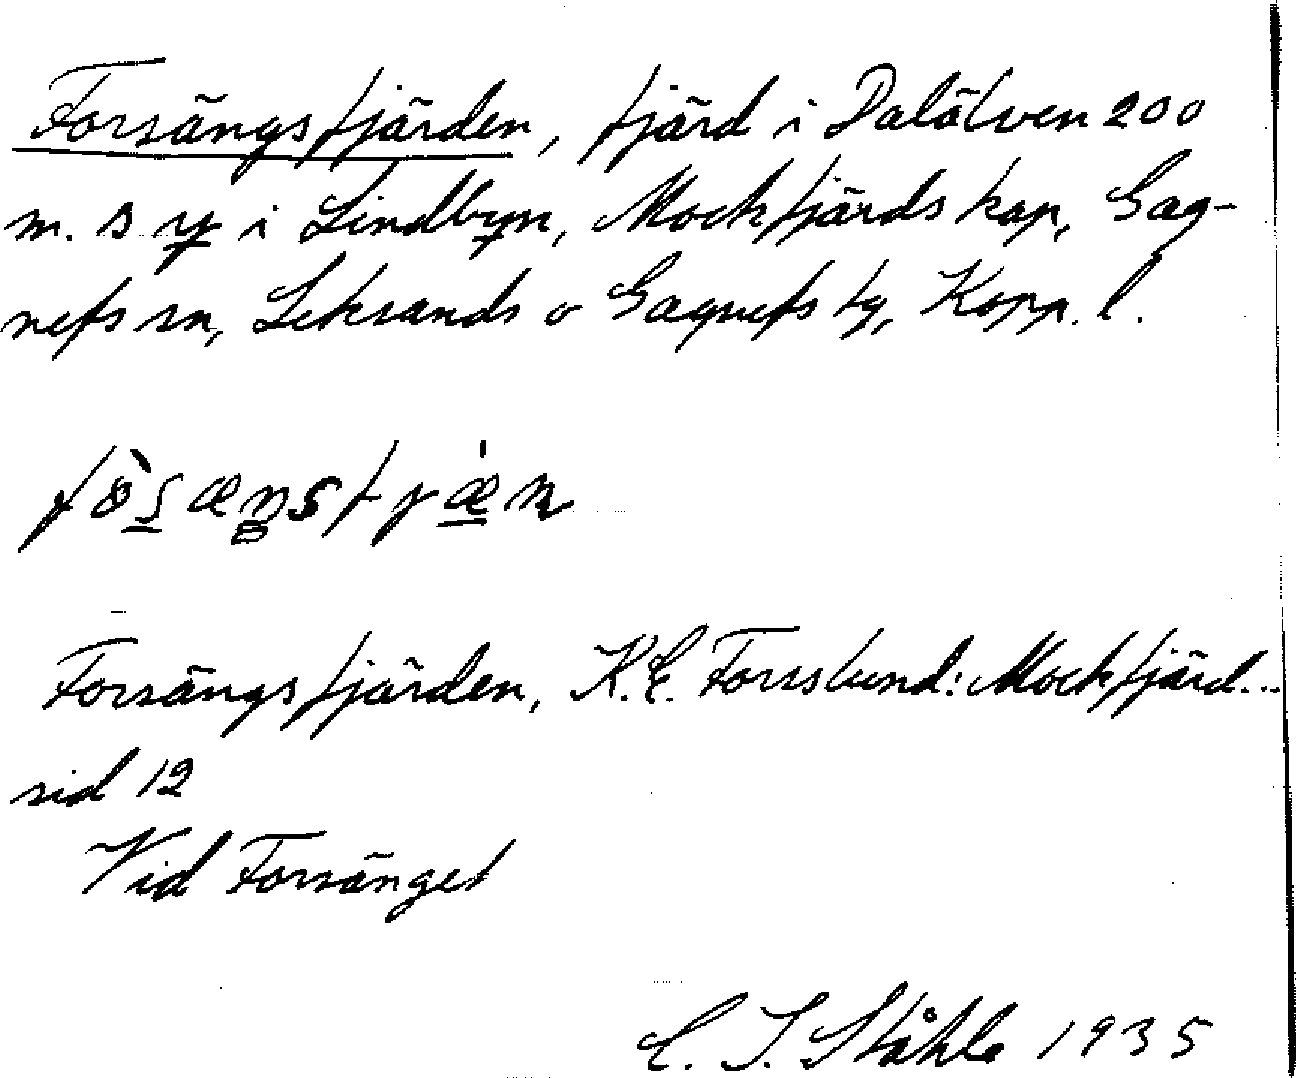 Forsängsfjärden, fjärd i Dalälven 200
m. s y i Lindbyn, Mockfjärds kap, Gag-
nefs sn, Leksands o Gagnefs tg, Kopp. l.
Forsängsfjärden, K.E. Forsslund: Mockfjärd...
sid 12
Vid Forsänget
C. I. Ståhle 1935